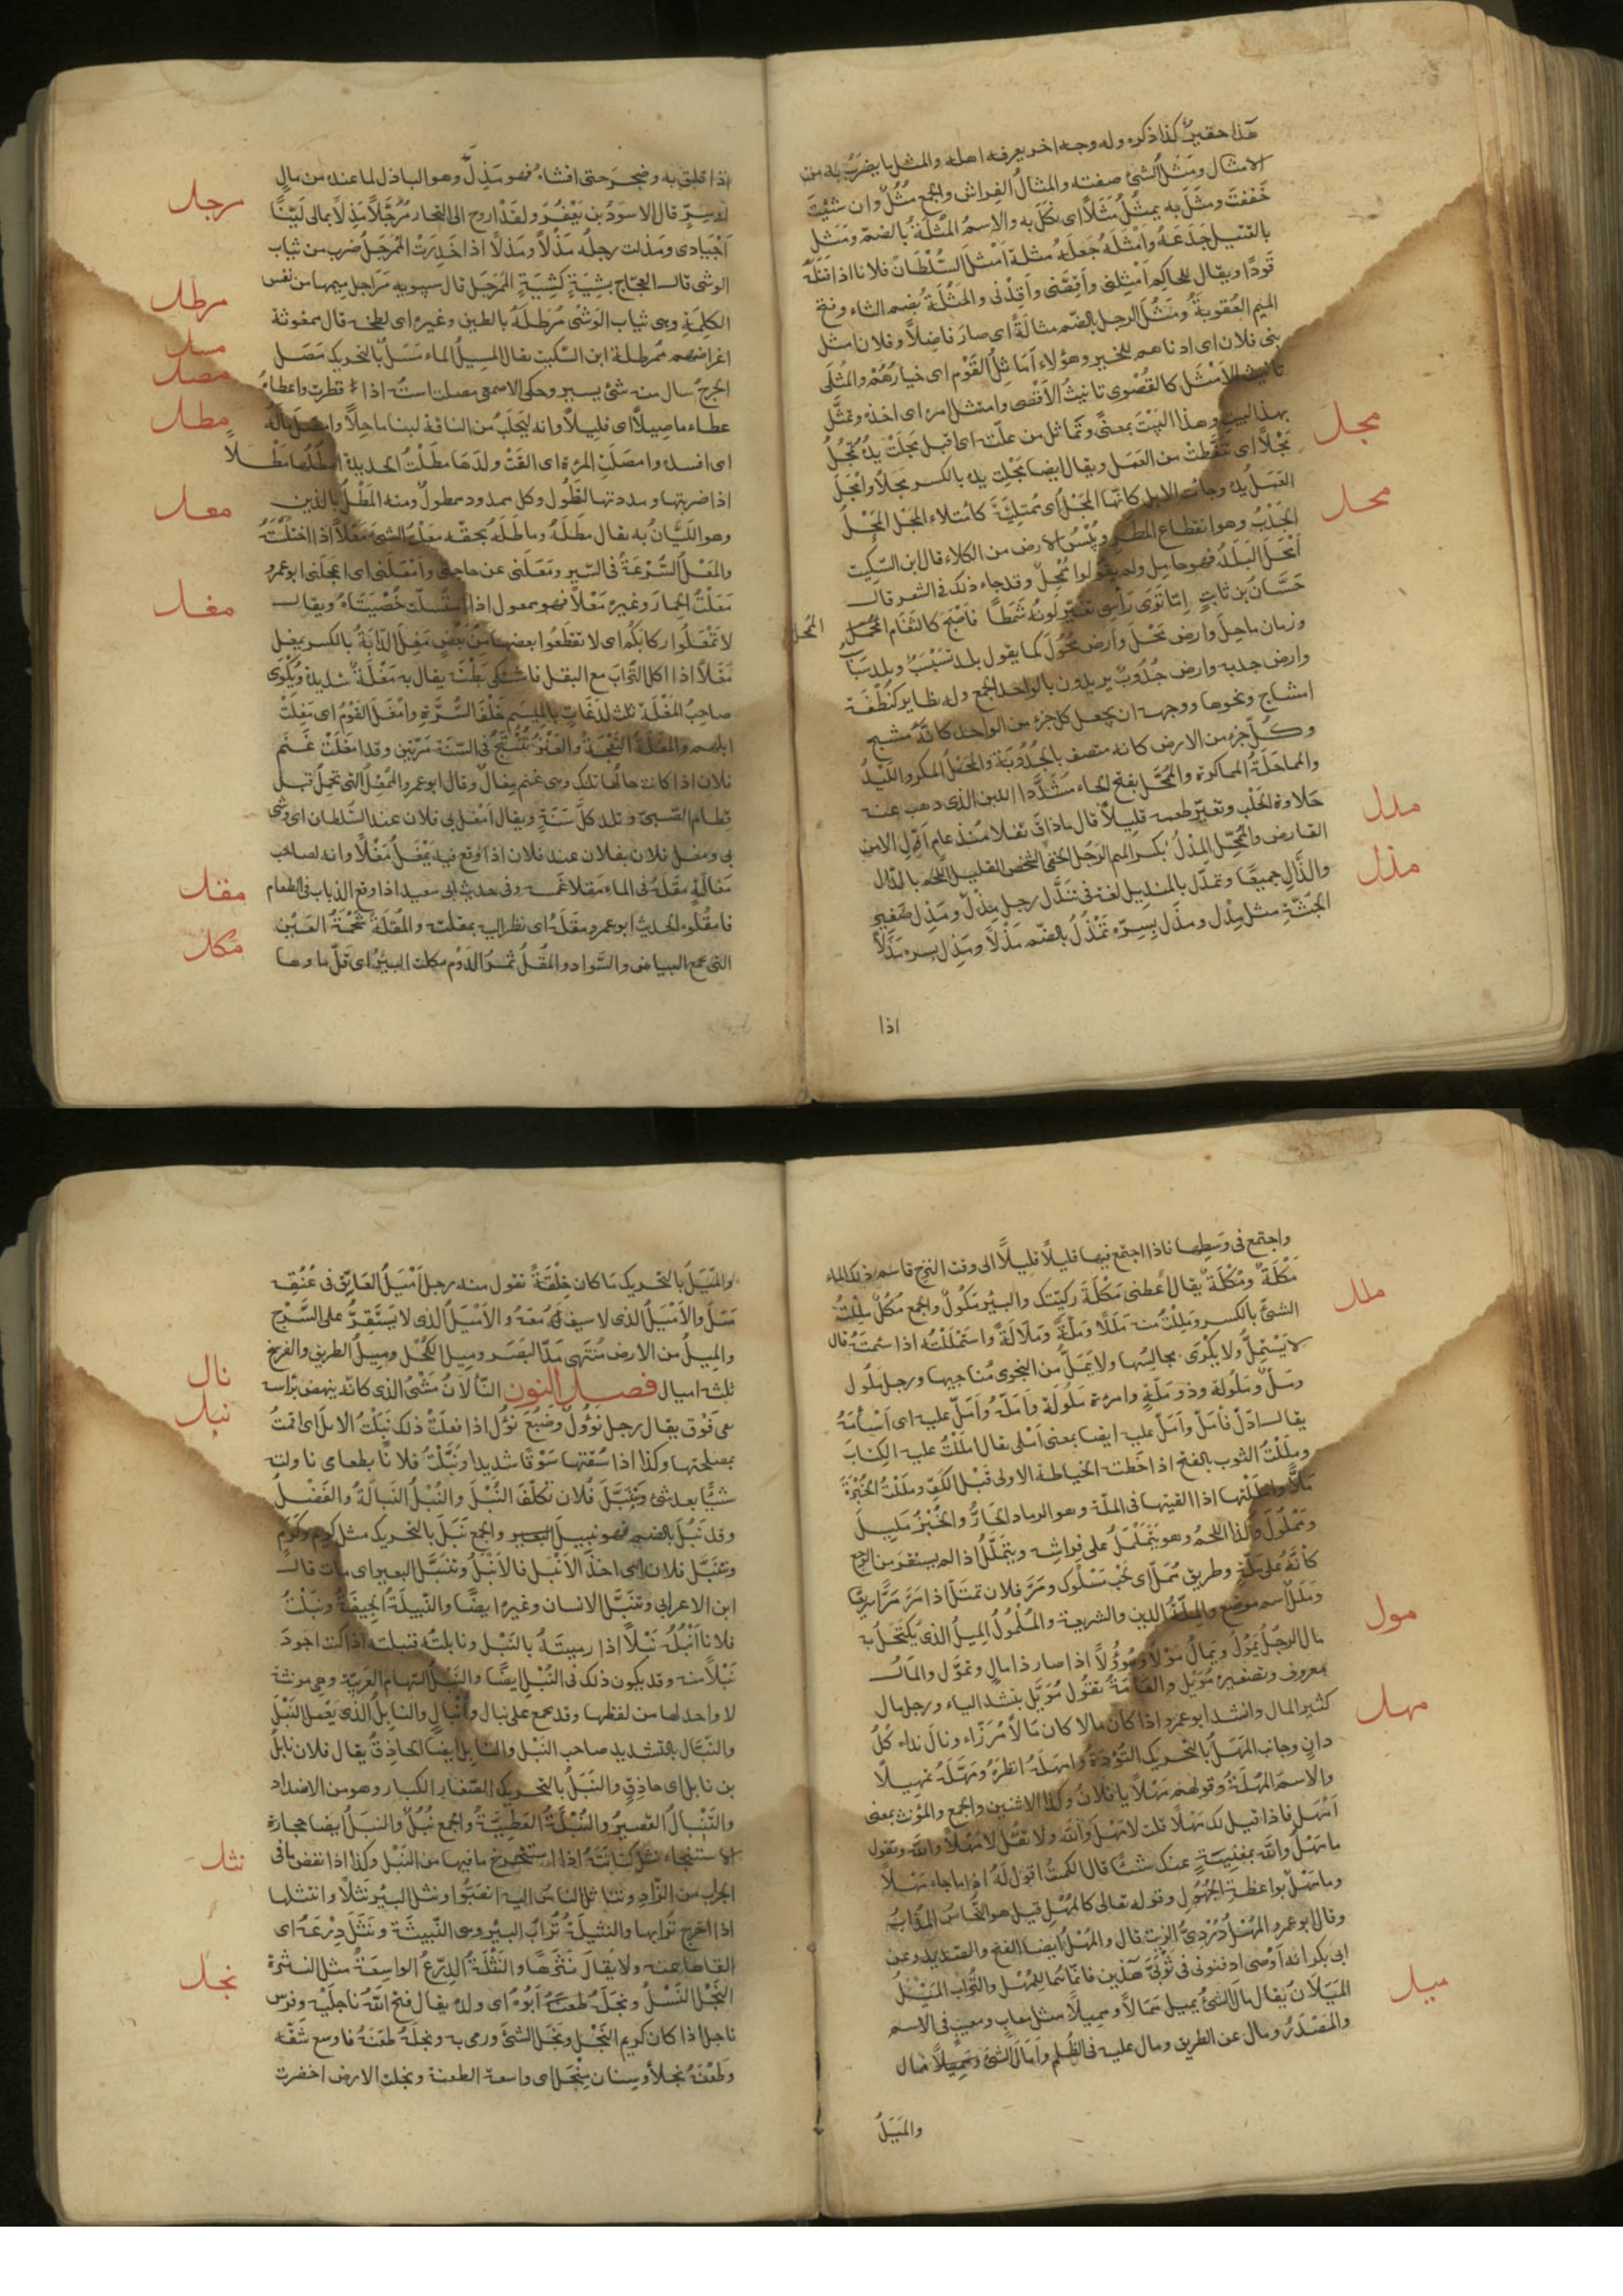 هذا حقير كذا ذكره وله وجه اخر يعرفه اهله والمثل ما يضرب به من
الامثال ومثل الشئ صفته والمثال الفراش والجمع مثل وان شئت
خففت ومثل به يمثل مثلا اى نكل به والاسم المثلة بالضم ومثل
بالقتيل جدعه وامثله جعله مثلة امثل السلطان فلانا اذا قتله
قودا ويقال للحاكم امثلنى واقصنى واقدنى والمثلة بضم الثاء وفتح
الميم العقوبة ومثل الرجل بالضم مثالة اى صار فاضلا وفلان امثل
بنى فلان اى ادناهم للخير وهؤلاء اماثل القوم اى خيارهم والمثلى
تانيث الامثل كالقصوى تانيث الاقصى وامتثل امره اى اخذه وتمثل
بهذا البيت وهذا البيت بمعنى وتماثل من علته اى اقبل مجلت يده تمجل
مجل
مجلا اى تنفطت من العمل ويقال ايضا مجلت يده بالكسر مجلا وامجل
العمل يده وجات الابل كانها المجل اى ممتلئة كامتلاء المجل المحل
محل
الجدب وهو انقطاع المطر ويبس الارض من الكلاء قال ابن السكيت
امحل البلد فهو ماحل ولم يقولوا ممحل وقد جاء ذلك فى الشعر قال
حسان بن ثابت اما ترى راسى تغير لونه شمطا فاصبح كالثغام الممحل
الممحل
وزمان ماحل وارض محل وارض محول كما يقول بلد سبسب وبلد سباسب
وارض جدبه وارض جدوب يريدون بالواحد الجمع وله نظاير كنطفة
امشاج ونحوها ووجهه ان يجعل كل جزء من الواحد كانه مشيج
وكل جزء من الارض كانه متصف بالجدوبة والمحل المكر والكيد
والمماحلة المماكرة والممحل بفتح الحاء مشددا اللبن الذى ذهب عنه
حلاوة الحلب وتغير طعمه قليلا قال ما ذاق ثفلا منذ عام اول الا من
مدل
القارص والممحل المدل بكسر الميم الرجل الخفى الشخص القليل اللحم بالدال
والذال جميعا وتمدل بالمنديل لغة فى تندل رجل مذل ومذل صغير
مذل
الجثة مثل مدل ومذل بسره تمذل بالضم مذلا ومذل بسره مذلا
اذا
اذا قلق به وضجر حتى افشاه فهو مذل وهو الباذل لما عنده من مال
او سر قال الاسود بن يعفر ولقد اروح الى التجار مرجلا مذلا بمالى لينا
اجيادى ومذلت رجله مذلا ومذلا اذا خدرت الممرجل ضرب من ثياب
مرجل
الوشى قال العجاج بشية كشية الممرجل قال سيبويه مراجل ميمها من نفس
الكلمة وهى ثياب الوشى مرطله بالطين وغيره اى لطخه قال ممغوثة
مرطل
اعراضهم ممرطلة ابن السكيت يقال المسيل الماء مسل بالتحريك مصل
مسل
مصل
الجرح سال منه شئ يسير وحكى الاصمعى مصلت استه اذا قطرت واعطاه
عطاء ماصلا اى قليلا وانه ليحلب من الناقة لبنا ماصلا وامصل ماله
اى افسده وامصلت المرءة اى القت ولدها مطلت الحديدة امطلها مطلا
مطل
اذا ضربتها ومددتها لتطول وكل ممدود ممطول ومنه المطل بالدين
وهو الليان به يقال مطله وماطله بحقه معلت الشئ معلا اذا اختلسته
معل
والمعل السرعة فى السير ومعلنى عن حاجتى وامعلنى اى اعجلنى ابو عمرو
معلت الحمار وغيره معلا فهو ممعول اذا استسللت خصيتاه ويقال
لا تمعلوا ركابكم اى لا تقطعوا بعضها من بعض مغل الدابة بالكسر يمغل
مغل
مغلا اذا اكل التراب مع البقل فاشتكى بطنه يقال به مغلة شديدة ويكوى
صاحب المغلة ثلث لذعات بالميسم خلف السرة وامغل القوم اى مغلت
ابلهم والمغلة النعجة والعنز تنتج فى السنة مرتين وقد امغلت غنم
فلان اذا كانت حالها تلك وهى غنم مغال وقال ابو عمرو الممغل التى تحمل قبل
فطام الصبى وتلد كل سنة ويقال امغل بى فلان عند السلطان اى وشى
بى ومغل فلان بفلان عند فلان اذا وقع فيه يمغل مغلا وانه لصاحب
مغالة مقله فى الماء مقلا غمسه وفى حديث ابى سعيد اذا وقع الذباب فى الطعام
مقل
فامقلوه الحديث ابو عمرو مقله اى نظر اليه بمقلته والمقلة شحمة العين
التى تجمع البياض والسواد والمقل ثمر الدوم مكلت البئر اى قل ماوها
مكل
واجتمع فى وسطها فاذا اجتمع فيها قليلا قليلا الى وقت النزح فاسم ذلك الماء
مكلة ومكلة يقال اعطنى مكلة ركيتك والبئر مكول والجمع مكل مللت
ملل
الشئ بالكسر ومللت منه مللا وملة وملالة واستمللته اذا سئمته قال
لا يستمل ولا يكرى مجالسها ولا يمل من النجوى مناجيها ورجل ملول
ومل وملولة وذو ملة وامرءة ملولة وامله وامل عليه اى اسأمه
يقال ادل فامل وامل عليه ايضا بمعنى املى يقال امللت عليه الكتاب
ومللت الثوب بالفتح اذا خطت الخياطة الاولى قبل الكف ومللت الخبزة
ملا وامللتها اذا القيتها فى الملة وهو الرماد الحار والخبز مليل
ومملول وكذا اللحم وهو يتململ على فراشه ويتملل اذا لم يستقر من الوجع
كانه على ملة وطريق ممل اى لحب مسلوك ومر فلان تمتل اذا مر مرا سريعا
وملل اسم موضع والملة الدين والشريعة والملمول الميل الذى يكتحل به
مال الرجل يمول ويمال مولا ومؤولا اذا صار ذا مال وتمول والمال
مول
معروف وتصغيره مويل والعامة تقول مويل بتشديد الياء ورجل مال
كثير المال وانشد ابو عمرو اذا كان مالا كان مالا مرزاء ونال نداه كل
دان وجانب المهل بالتحريك التؤدة وامهله انظره ومهله تمهيلا
مهل
والاسم المهلة وقولهم مهلا يا فلان وكذا الاثنين والجمع والمؤنث بمعنى
امهل فاذا قيل لك مهلا قلت لا مهل والله ولا تقل لا مهلا والله وتقول
ما مهل والله بمغنية عنك شئا قال الكميت اقول له اذا ما جاء مهلا
وما مهل بواعظة الجهول وقوله تعالى كالمهل قيل هو النحاس المذاب
وقال ابو عمرو المهل دردى الزيت قال والمهل ايضا القيح والصديد وعن
ابى بكر انه اوصى ادفنونى فى ثوبى هذين فانما هما للمهل والتراب الميل
ميل
الميلان يقال مال الشئ يميل ممالا ومميلا مثل معاب ومعيب فى الاسم
والمصدر ومال عن الطريق ومال عليه فى الظلم وامال الشئ فمال
والميل
والميل بالتحريك ما كان خلقة تقول منه رجل اميل العاتق فى عنقه
ميل والاميل الذى لا سيف له معه والاميل الذى لا يستقر على السرج
والميل من الارض منتهى مد البصر وميل الكحل وميل الطريق والفرسخ
ثلثة اميال فصل النون النألان مشى الذى كانه ينهض براسه
نال
الى فوق يقال رجل نؤول وضبع نؤول اذا فعلت ذلك نبلت الابل اى قمت
نبل
بمصلحتها وكذا اذا سقتها سوقا شديدا ونبلت فلانا بطعام اى ناولته
شيئا بعد شئ وتنبل فلان تكلف النبل والنبل النبالة والفضل
وقد نبل بالضم فهو نبيل والجمع نبل بالتحريك مثل كريم وكرم
وتنبل فلان اى اخذ الانبل فالانبل وتنبل البعير اى مات قال
ابن الاعرابى وتنبل الانسان وغيره ايضا والنبيلة الجيفة ونبلت
فلانا انبله نبلا اذا رميته بالنبل ونابلته فنبلته اذا كنت اجود
نبلا منه وقد يكون ذلك فى النبل ايضا والنبل السهام العربية وهى مونثة
لا واحد لها من لفظها وقد جمع على نبال وانبال والنابل الذى يعمل النبل
والنبال بالتشديد صاحب النبل والنابل ايضا الحاذق يقال فلان نابل
بن نابل اى حاذق والنبل بالتحريك الصغار الكبار وهو من الاضداد
والتنبال القصير والنبلة العطية والجمع نبل والنبل ايضا حجارة
الاستنجاء نثل كنانته اذا استخرج ما فيها من النبل وكذا اذا نفض ما فى
نثل
الجراب من الزاد وتناثل الناس اليه انصبوا ونثل البئر نثلا وانتثلها
اذا اخرج ترابها والنثيلة تراب البئر وهى النبيثة ونثل درعه اى
القاها عنه ولا يقال نثرها والنثلة الدرع الواسعة مثل النثرة
النجل النسل ونجله ابوه اى ولده يقال قبح الله ناجليه وفرس
نجل
ناجل اذا كان كريم النجل ونجل الشئ ورمى به ونجله طعنه فاوسع شقه
وطعنة نجلاء وسنان منجل اى واسعة الطعنة ونجلت الارض اخضرت